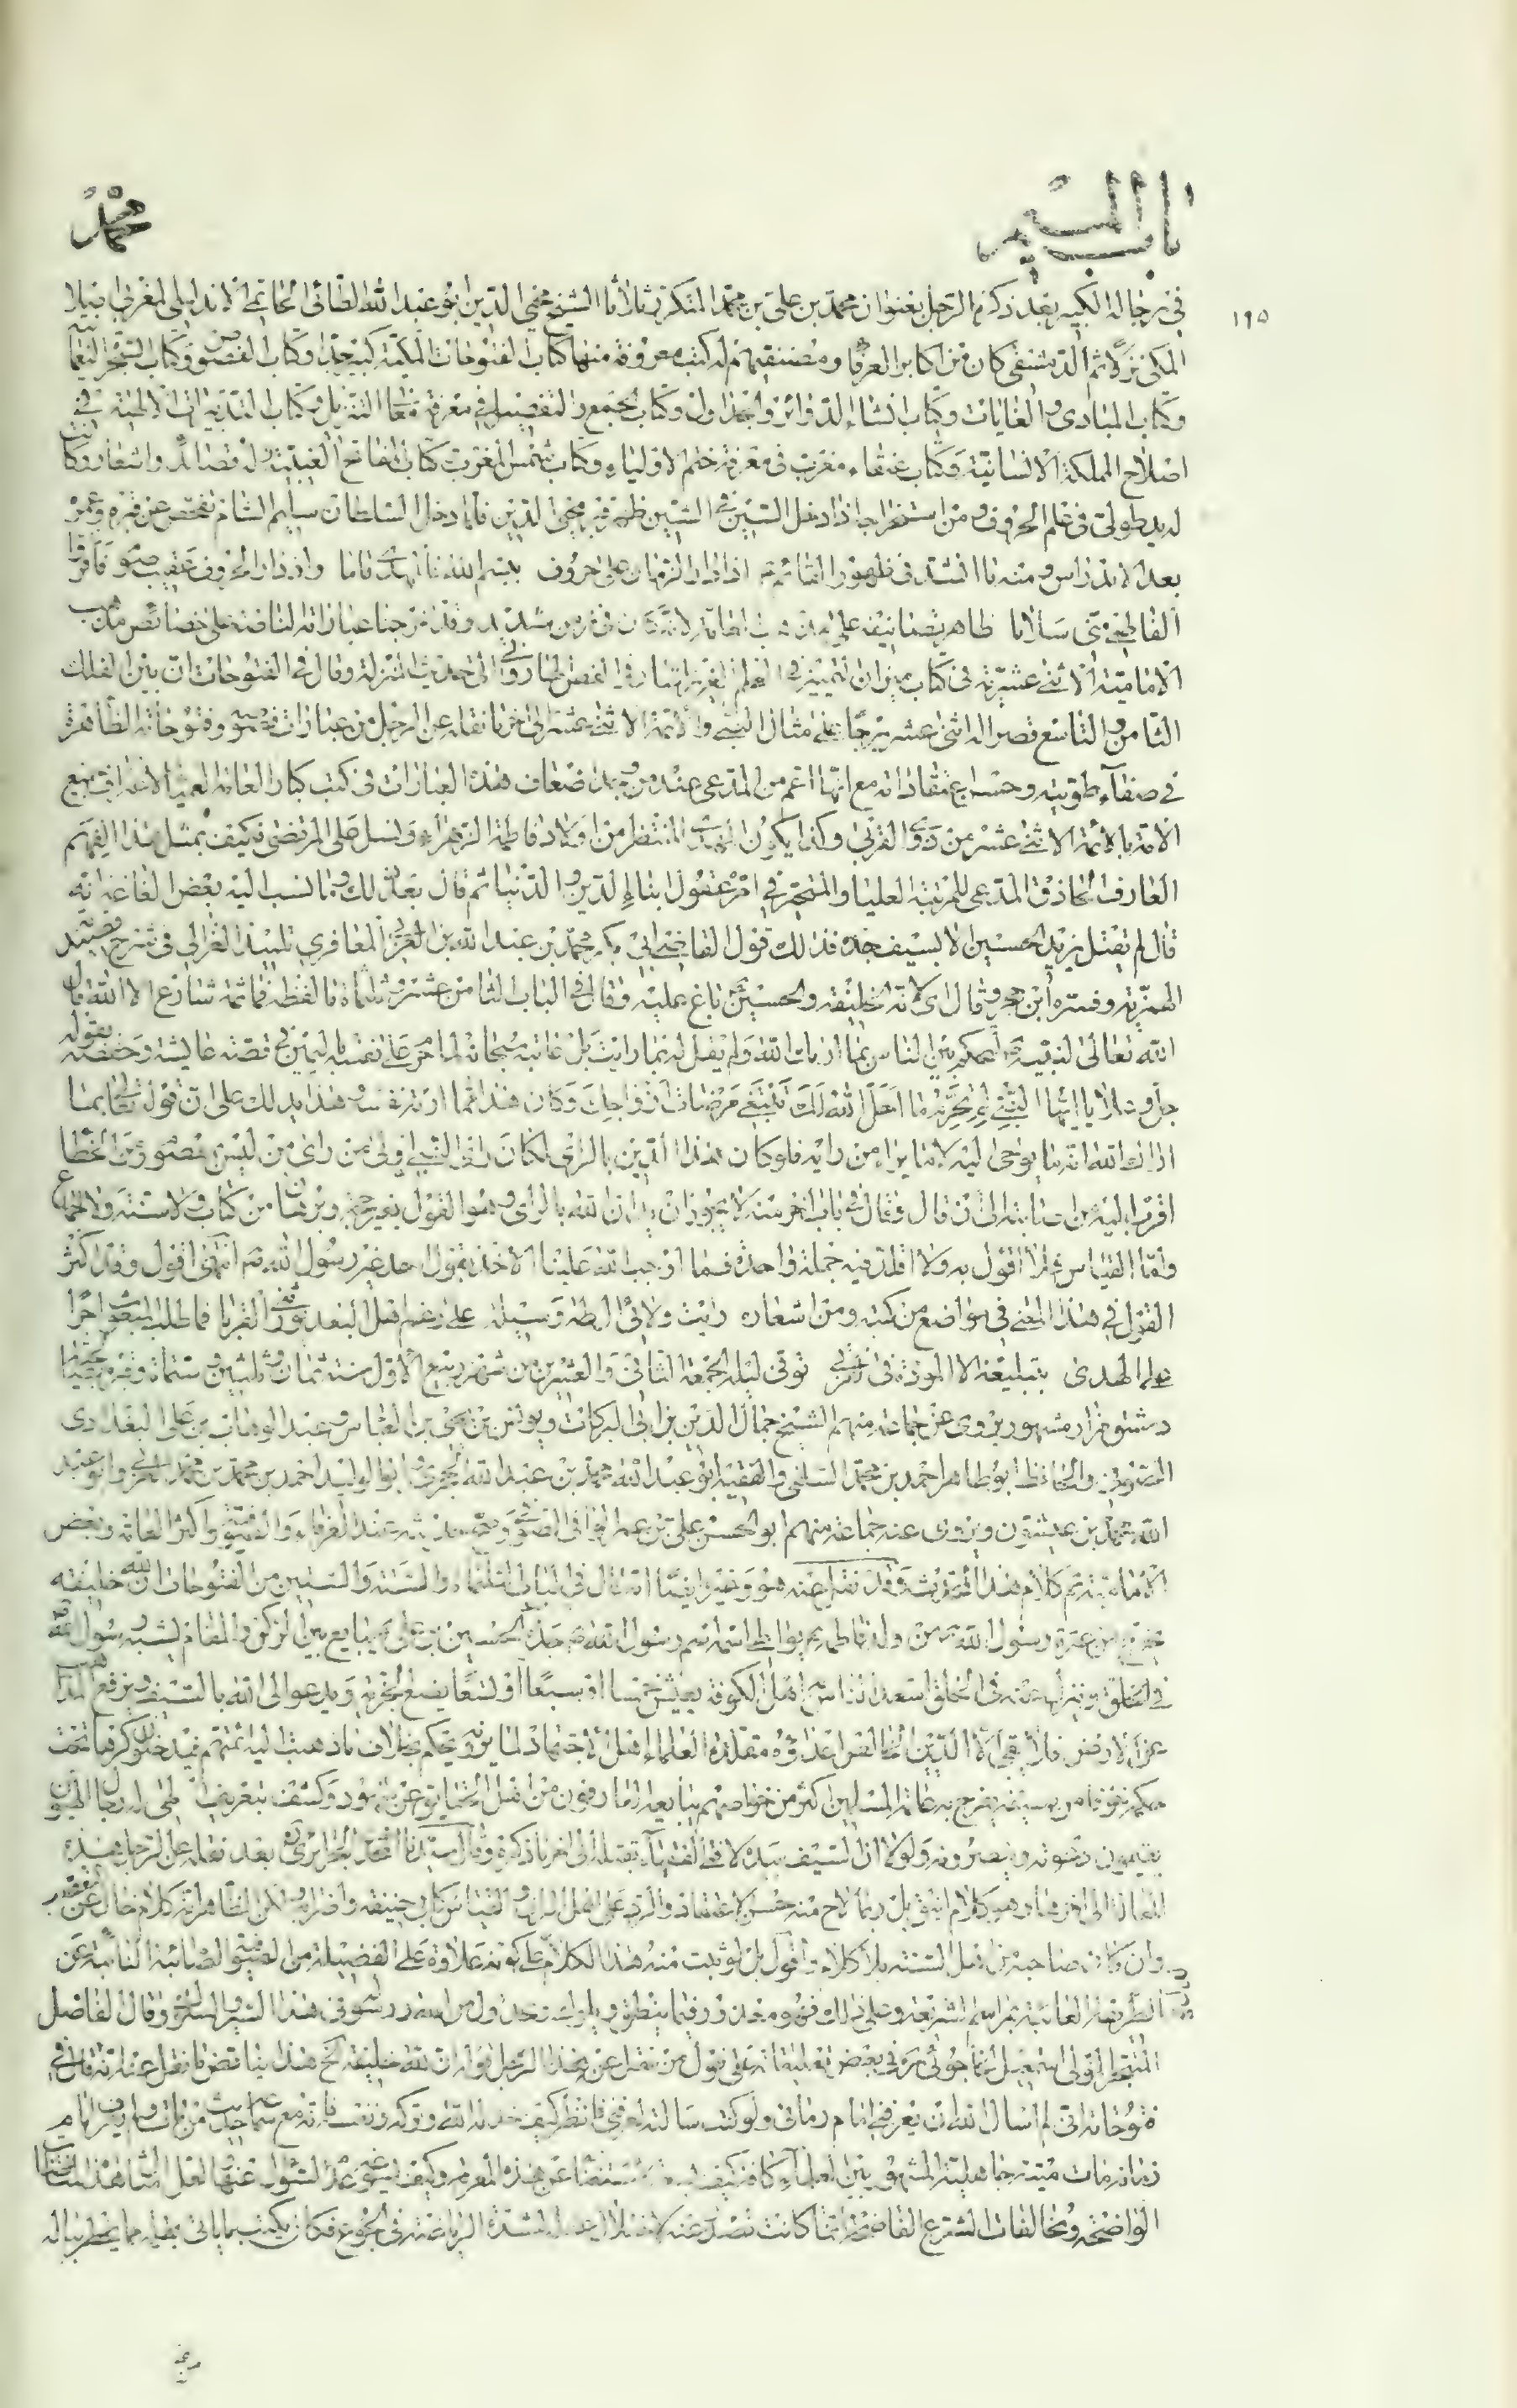 باب الميم
محمد
١٩٥
في رجاله الكبير بعد ذكره الرجل بعنوان محمد بن علي بن محمد المتكرر ثلاثا الشيخ محيي الدين ابو عبد الله الطائي الحاتمي الاندلسي المغربي
المكي ثم الدمشقي كان من اكابر العرفاء ومصنفيهم له كتب معروفة منها كتاب الفتوحات المكية كبير جدا وكتاب الفصوص وكتاب
وكتاب المبادي والغايات وكتاب انشاء الدوائر والجداول وكتاب الجمع والتفصيل في معرفة معاني التنزيل وكتاب التدبيرات الالهية في
اصلاح المملكة الانسانية وكتاب عنقاء مغرب في معرفة ختم الاولياء وكتاب شمس المغرب كتاب المفاتح الغيبية وله قصائد واشعار وكانت
له يد طولى في علم الحروف ومن استخراجاته اذا دخل السين في الشين ظهر قبر محيي الدين فلما دخل السلطان سليم الشام تفحص عن قبره وعمره
بعد الاندراس ومنه ما انشد في ظهور القائم اذا دار الزمان على حروف بسم الله فالمهدي قاما واذ دار الحروف عقيب صوم فاقرؤا
الفاطمي مني سلاما ظاهر تصانيفه على مذهب العامة لانه كان في زمن شديد وقد اخرجنا عباراته الناصة على خصائص مذهب
الامامية الاثنى عشرية في كتاب ميزان التمييز في العلم العزيز الى حديث المنزلة وقال في الفتوحات ان بين الفلك
الثامن والتاسع قصر له اثنى عشر برجا على مثال النبي والائمة الاثنى عشر الى اخر ما نقله عن الرجل من عبارات فصوصه وفتوحاته الظاهرة
في صفاء طويته وحسن اعتقاداته مع انها اعم من المدعى عند من وجد اضعاف هذه العبارات في كتب كبار العامة
الامة بالائمة الاثنى عشر من ذوي القربى وكذا يكون المهدي المنتظر من اولاد فاطمة الزهراء ونسل علي المرتضى فكيف بمثل هذا الفهم
العارف الحاذق المدعي للمرتبة العليا والمتحير في امره عقول ابناء الدين والدنيا ثم قال بعد ذلك وما نسب اليه بعض الفاغة انه
قال لم يقتل يزيد الحسين الا بسيف جده فذلك قول القاضي ابي بكر محمد بن عبد الله بن العربي المعافري تلميذ الغزالي في شرح قصيدة
الهمزية وفسره ابن حجر وقال اي لانه الخليفة والحسين باغ عليه وقال في الباب الثامن عشر وثلثمائة ما لفظه فما ثمة شارع الا الله قال
الله تعالى لنبيه لتحكم بين الناس بما اراك الله ولم يقل له بما رايت بل عاتبه سبحانه لما حرم على نفسه باليمين في قصة عايشة وحفصة بقوله
جل وعلا يا ايها النبي لم تحرم ما احل الله لك تبتغي مرضات ازواجك وكان هذا مما ارته نفسه هذا يدلك على ان قوله تعالى بما
اراك الله انه ما يوحى اليه لا ما يراه من رايه فلو كان هذا الدين بالراي لكان راي النبي اولى من راي من ليس بمعصوم من الخطا
اقرب اليه من اصابته الى ان قال وقال في باب اخر منه لا يجوز ان يدان الله بالراي وهو القول بغير حجة وبرهان من كتاب ولا سنة ولا اجماع
واما القياس فلا اقول به ولا اقلد فيه جملة واحدة فما اوجب الله علينا الاخذ بقول احد غير رسول الله انتهى اقول وقد اكثر
القول في هذا المعنى في مواضع من كتبه ومن اشعاره رايت ولائي آل طه وسيلة على رغم اهل البعد يورثني القربى فما طلب المبعوث اجرا
على الهدى بتبليغه الا المودة في القربى توفى ليلة الجمعة الثاني والعشرين من شهر ربيع الاول سنة ثمان وثلثين وستمائة وقبره بصالحية
دمشق مزار مشهور يروي عن جماعة منهم الشيخ جمال الدين بن ابي البركات ويونس بن يحيى بن العباس وعبد الوهاب بن علي البغدادي
الصوفي والحافظ ابو طاهر احمد بن محمد السلفي والفقيه ابو عبد الله محمد بن عبد الله الحجري وابو الوليد احمد بن محمد بن محمد وابو عبد
الله محمد بن عيشون ويروي عنه جماعة منهم ابو الحسن علي بن عمر الوافي الصوفي عند العرفاء والصوفية واكثر العامة وبعض
الامامية تم كلام هذا المحدث وقد نقل عنه هو وغيره ايضا انه قال في الباب الثلثمائة والستة والستين من الفتوحات ان لله خليفة
يخرج من عترة رسول الله من ولد فاطمة يواطئ اسمه اسم رسول الله جده الحسين بن علي يبايع بين الركن والمقام يشبه رسول الله
في الخلق وينزل عنه في الخلق اسعد الناس به اهل الكوفة يعيش خمسا او سبعا او تسعا يضع الجزية ويدعو الى الله بالسيف ويرفع المذاهب
عن الارض فلا يبقى الا الدين الخالص اعداؤه مقلدة العلماء اهل الاجتهاد لما يرونه يحكم بخلاف ما ذهب اليه ائمتهم فيدخلون كرها تحت
حكمه خوفا من سيفه يفرح به عامة المسلمين اكثر من خواصهم يبايعه العارفون من اهل الحقايق عن شهود وكشف بتعريف الهي له رجال الهيون
يقيمون دعوته وينصرونه ولولا ان السيف بيده لافتى الفقهاء بقتله الى اخر ما ذكره وقال سيدنا المحدث الجزائري بعد نقله عن الرجل هذه
المقالة الى اخرها وهو كلام انيق بل ربما لاح منه حسن الاعتقاد والرد على اهل الراي والقياس كابي حنيفة واضرابه لان الظاهر انه كلام خال عن التعصب
وان كان صاحبه من اهل السنة بلا كلام واقول بل لو ثبت منه هذا الكلام على كونه علاوة على الفضيلة من الصائبة النائية عن
الطريقة العائبة بمراسم الشريعة وعلى ذلك فهو معذور فيما ينطق وقال الفاضل
المتبحر المولى اسمعيل الخاجوئي ره في بعض تعليقاته على قول من نقل عن هذا الرجل قوله ان لله خليفة الخ هذا يناقض ما نقل عنه انه قال في
فتوحاته اني لم اسال الله ان يعرفني امام زماني ولو كنت سالته لعرفني فانظر كيف خذله الله وتركه ونفسه فانه مع سماعه حديث من مات ولم يعرف امام
زمانه مات ميتة جاهلية المشهور بين العلماء كافة كيف يسعه الاستغناء عن هذه المعرفة وكيف يسوغ عدم السؤال عنها لعل امثال هذه المناقضات
الواضحة ومخالفات الشرع الفاضحة انما كانت تصدر عنه لاختلال عقله لشدة الرياضة في الجوع فكان يكتب ما ياتي بقلمه مما يخطر بباله